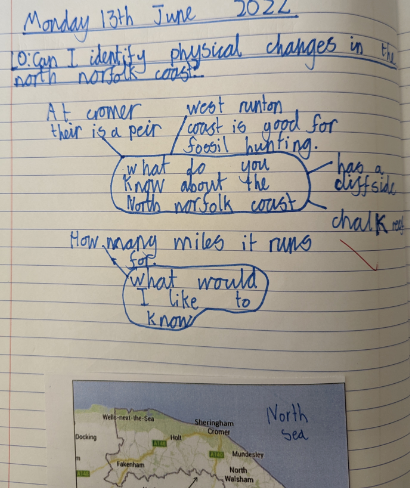 Monday 13th June 2022
LO: Can I identify physical changes in the
north norfolk coast?
At cromer
their is a peir
west runton
coast is good for
fossil hunting.
what do you
know about the
North norfolk coast
has a
cliffside
chalk
How many miles it runs
for.
what would
I like to
know
North
Sea
Wells-next-the-Sea
Sheringham
Cromer
Docking
Holt
Mundesley
Fakenham
North
Walsham